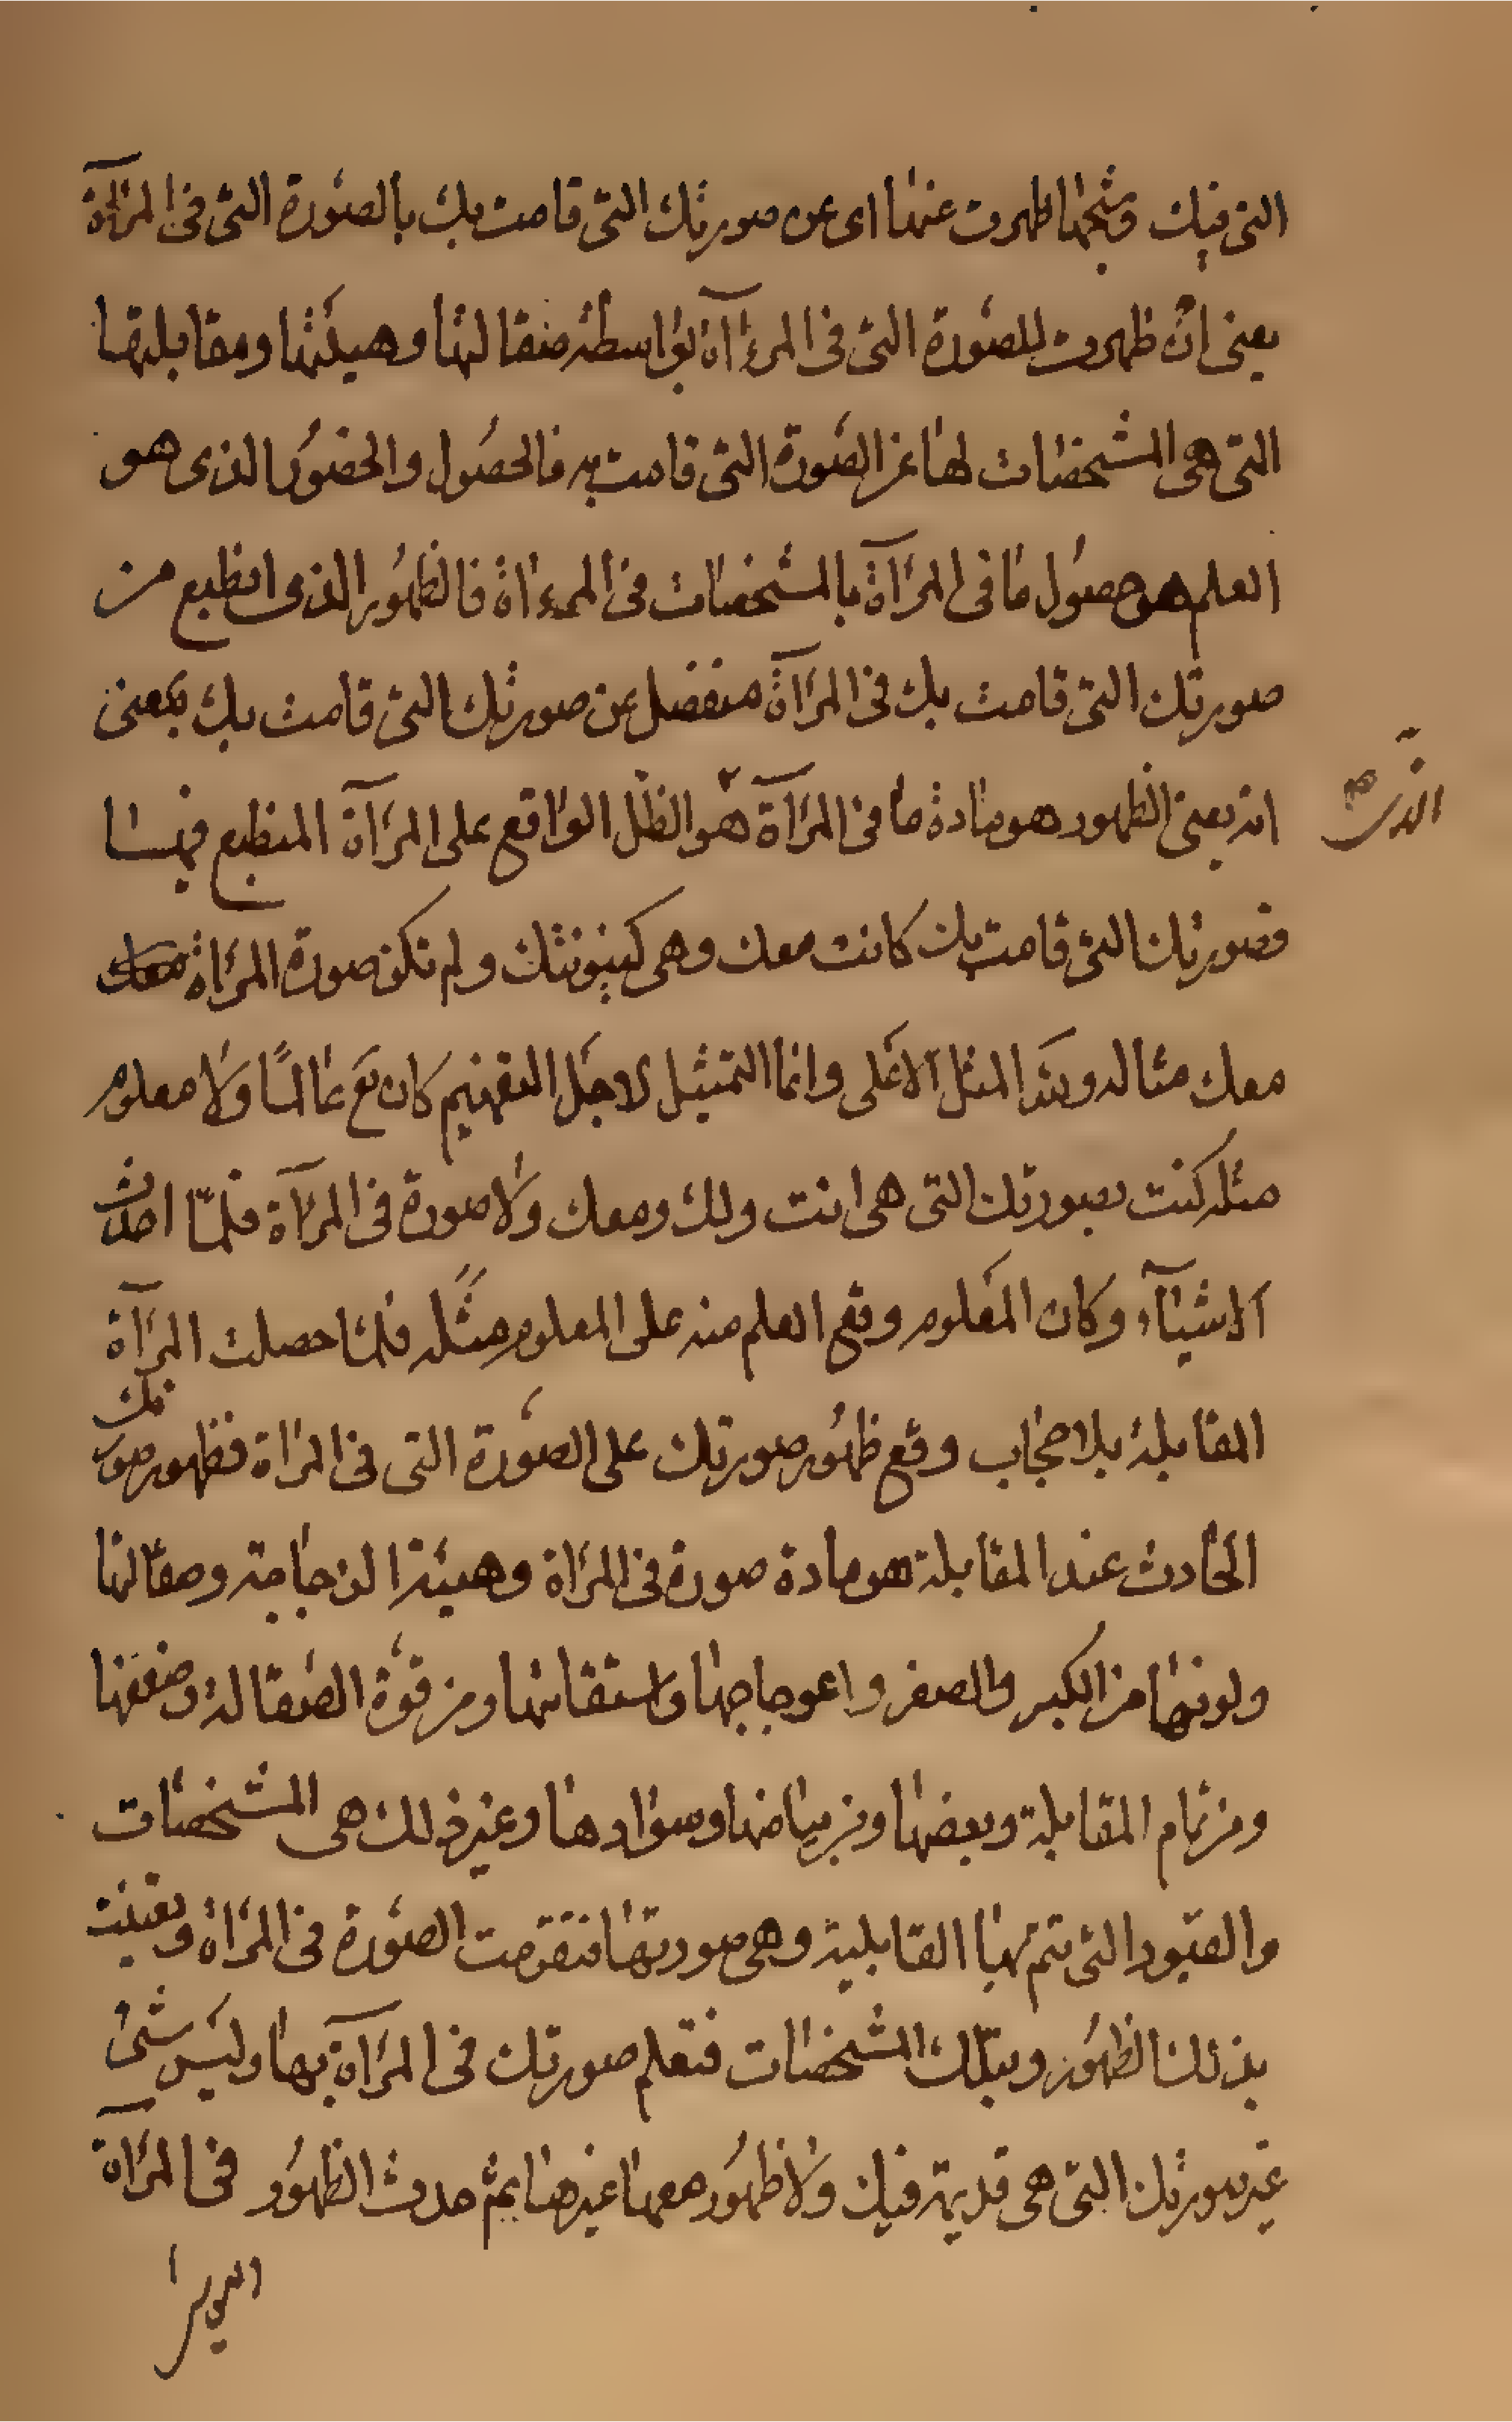 التى فيك وشبحها ظهرت عنها اى عن صورتك التى قامت بك بالصورة التى فى المرآة
يعنى ان ظهرت للصورة التى فى المرءآة بواسطة صقالتها وهيئتها ومقابلتها
التى هى المشخصات لها عن الصورة التى قامت به فالحصول والحضور الذى هو
العلم هو حصول ما فى المرآة بالمشخصات فى المرءاة فالظهور الذى انطبع من
صورتك التى قامت بك فى المرآة منفصل عن صورتك التى قامت بك بمعنى
انه يعنى الظهور هو مادة ما فى المرآة هو الظل الواقع على المرآة المنطبع فيها
الذى صح
فصورتك التى قامت بك كانت معك وهى كينونتك ولم تكن صورة المرآة معك
معك مثاله ولله المثل الاعلى وانما التمثيل لاجل التفهيم كان تع عالمًا ولا معلوم
مثله كنت بصورتك التى هى انت ولك ومعك ولا صورة فى المرآة فلمّا احدث
الاشيآء وكان المعلوم وقع العلم منه على المعلوم مثله فلمّا حصلت المرآة
المقابلة بلا حجاب وقع ظهور صورتك على الصورة التى فى المراة فظهور صورتك
الحادث عند المقابلة هو مادة صورة فى المرآة وهيئة الزجاجة وصقالتها
ولونها من الكبر والصغر واعوجاجها واستقامتها ومن قوة الصقالة وضعفها
ومن تمام المقابلة وبعضها ومن بياضها وسوادها وغير ذلك هى المشخصات
والقيود التى تتم بها القابلية وهى صورتها فتقومت الصورة فى المرآة وتعينت
بذلك الظهور وبتلك المشخصات فتعلم صورتك فى المرآة بها وليس شئ
غير صورتك التى هى قديمة فيك ولا ظهور معها غيرها ثم حدث الظهور فى المرآة